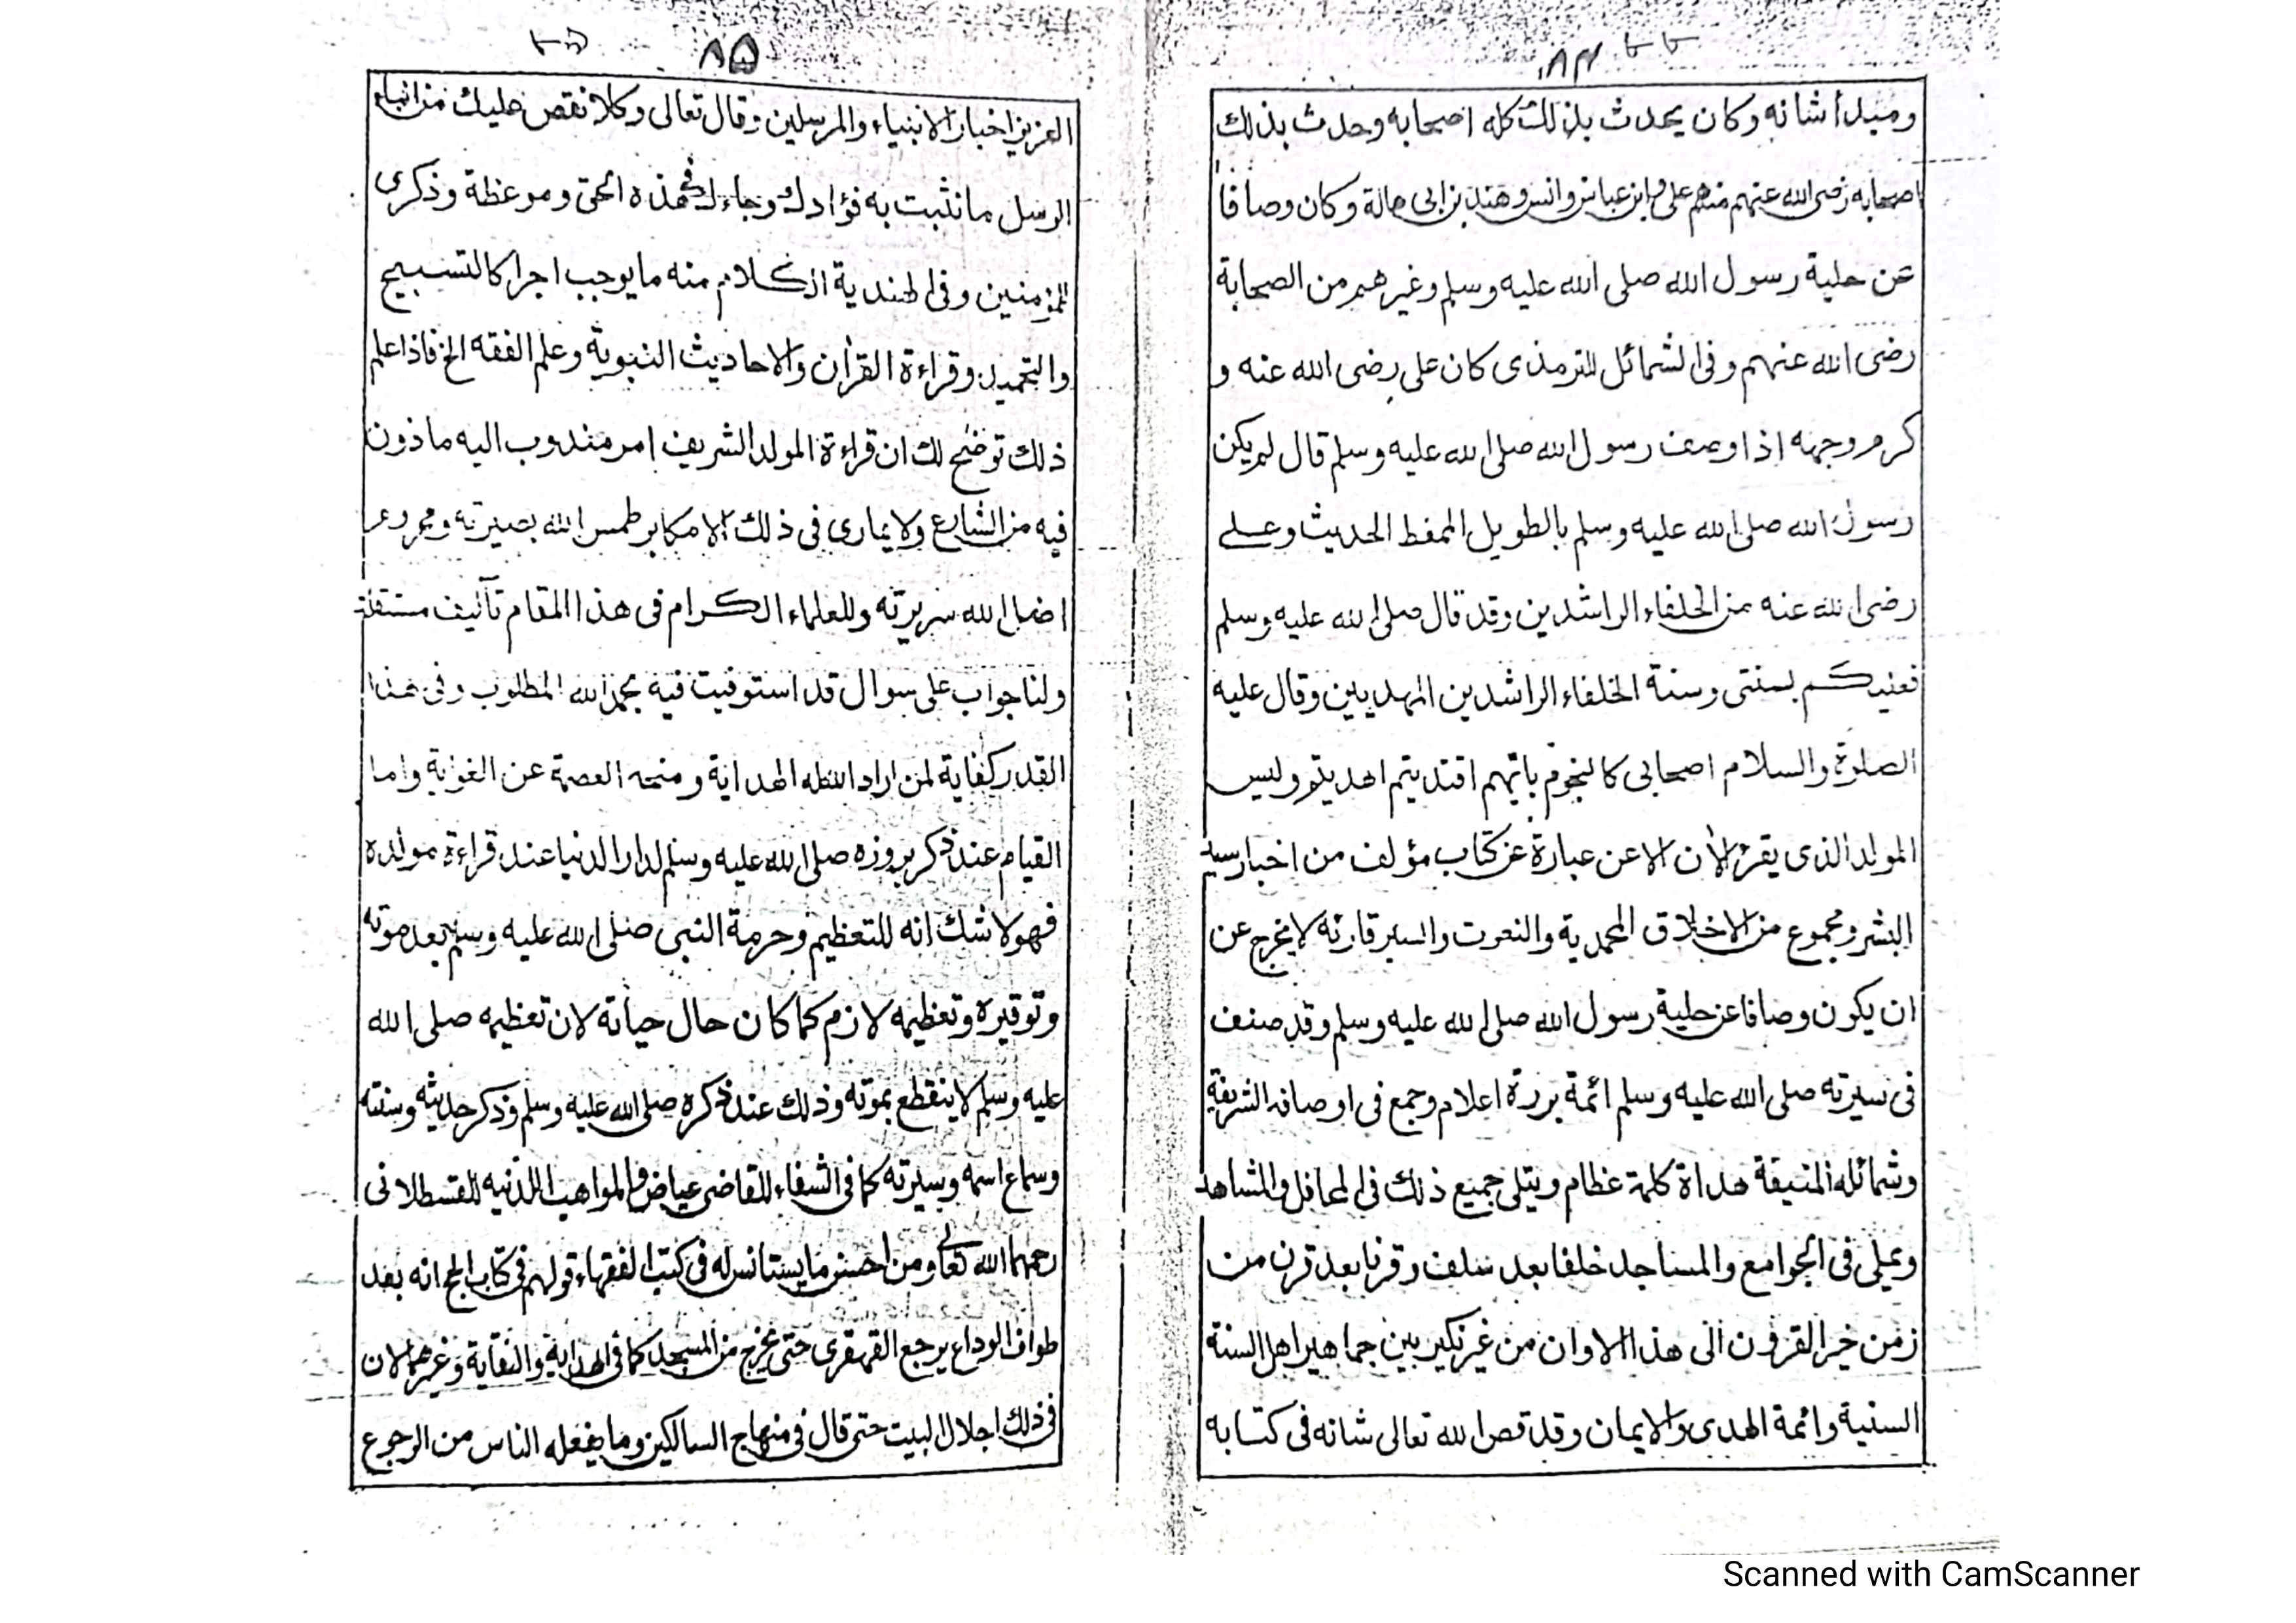 ٨٤
ومبدأ شانه وكان يحدث بذلك كله اصحابه وحدث بذلك
اصحابه رضى الله عنهم منهم على وابن عباس وانس وهند بن ابى هالة وكان وصافا
عن حلية رسول الله صلى الله عليه وسلم وغيرهم من الصحابة
رضى الله عنهم وفى الشمائل للترمذى كان على رضى الله عنه و
كرم وجهه اذا وصف رسول الله صلى الله عليه وسلم قال لم يكن
رسول الله صلى الله عليه وسلم بالطويل الممغط الحديث وعلى
رضى الله عنه من الخلفاء الراشدين وقد قال صلى الله عليه وسلم
فعليكم بسنتى وسنة الخلفاء الراشدين المهديين وقال عليه
الصلوة والسلام اصحابى كالنجوم بايهم اقتديتم اهديتم وليس
المولد الذى يقرؤ الأن الا عن عبارة عن كتاب مؤلف من اخبار سيد
البشر ومجموع من الاخلاق المحمدية والنعوت والسير قارئه لا يخرج عن
ان يكون وصافا عن حلية رسول الله صلى الله عليه وسلم وقد صنف
فى سيرته صلى الله عليه وسلم ائمة بررة اعلام وجمع فى اوصافه الشريفة
وشمائله المنيفة هداة كلمة عظام ويتلى جميع ذلك فى المحافل والمشاهد
ويملى فى الجوامع والمساجد خلفا بعد سلف وقرنا بعد قرن من
زمن خير القرون الى هذا الاوان من غير نكير بين جماهير اهل السنة
السنية وائمة الهدى والايمان وقد قص الله تعالى شانه فى كتابه
٨٥
العزيز اخبار الانبياء والمرسلين وقال تعالى وكلا نقص عليك من انباء
الرسل ما نثبت به فؤادك وجاءك فى هذه الحق وموعظة وذكرى
للمؤمنين وفى الهندية ان الكلام منه ما يوجب اجرا كالتسبيح
والتحميد وقراءة القرأن والاحاديث النبوية وعلم الفقه الخ فاذا علم
ذلك توضح لك ان قراءة المولد الشريف امر مندوب اليه ماذون
فيه من الشارع ولا يمارى فى ذلك الا مكابر طمس الله بصيرته ومحروم
اضل الله سريرته وللعلماء الكرام فى هذا المقام تأليف مستقلة
ولنا جواب على سوال قد استوفيت فيه بحمد الله المطلوب وفى هذا
القدر كفاية لمن اراد الله له الهداية ومنحه العصمة عن الغواية واما
القيام عند ذكر بروزه صلى الله عليه وسلم لدار الدنيا عند قراءة مولده
فهو لا شك انه للتعظيم وحرمة النبى صلى الله عليه وسلم بعد موته
وتوقيره وتعظيمه لازم كما كان حال حياته لان تعظيمه صلى الله
عليه وسلم لا ينقطع بموته وذلك عند ذكره صلى الله عليه وسلم وذكر حديثه وسنته
وسماع اسمه وسيرته كما فى الشفاء للقاضى عياض والمواهب اللدنيه للقسطلانى
رحمهما الله تعالى ومن احسن ما يستانس له فى كتب الفقهاء قولهم فى كتاب الحج انه بعد
طواف الوداع يرجع القهقرى حتى يخرج من المسجد كما فى الهداية والنقاية وغيرهما لان
فى ذلك اجلال البيت حتى قال فى منهاج السالكين وما يفعله الناس من الرجوع
Scanned with CamScanner